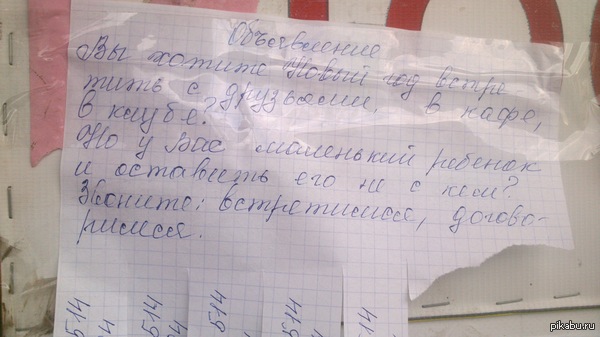 Объявление
Вы хотите Новый год встре-
тить с друзьями, в кафе,
в клубе?
Но у Вас маленький ребенок
и оставить его не с кем?
Звоните: встретимся, догово-
римся.
514
514
514
514
514
pikabu.ru